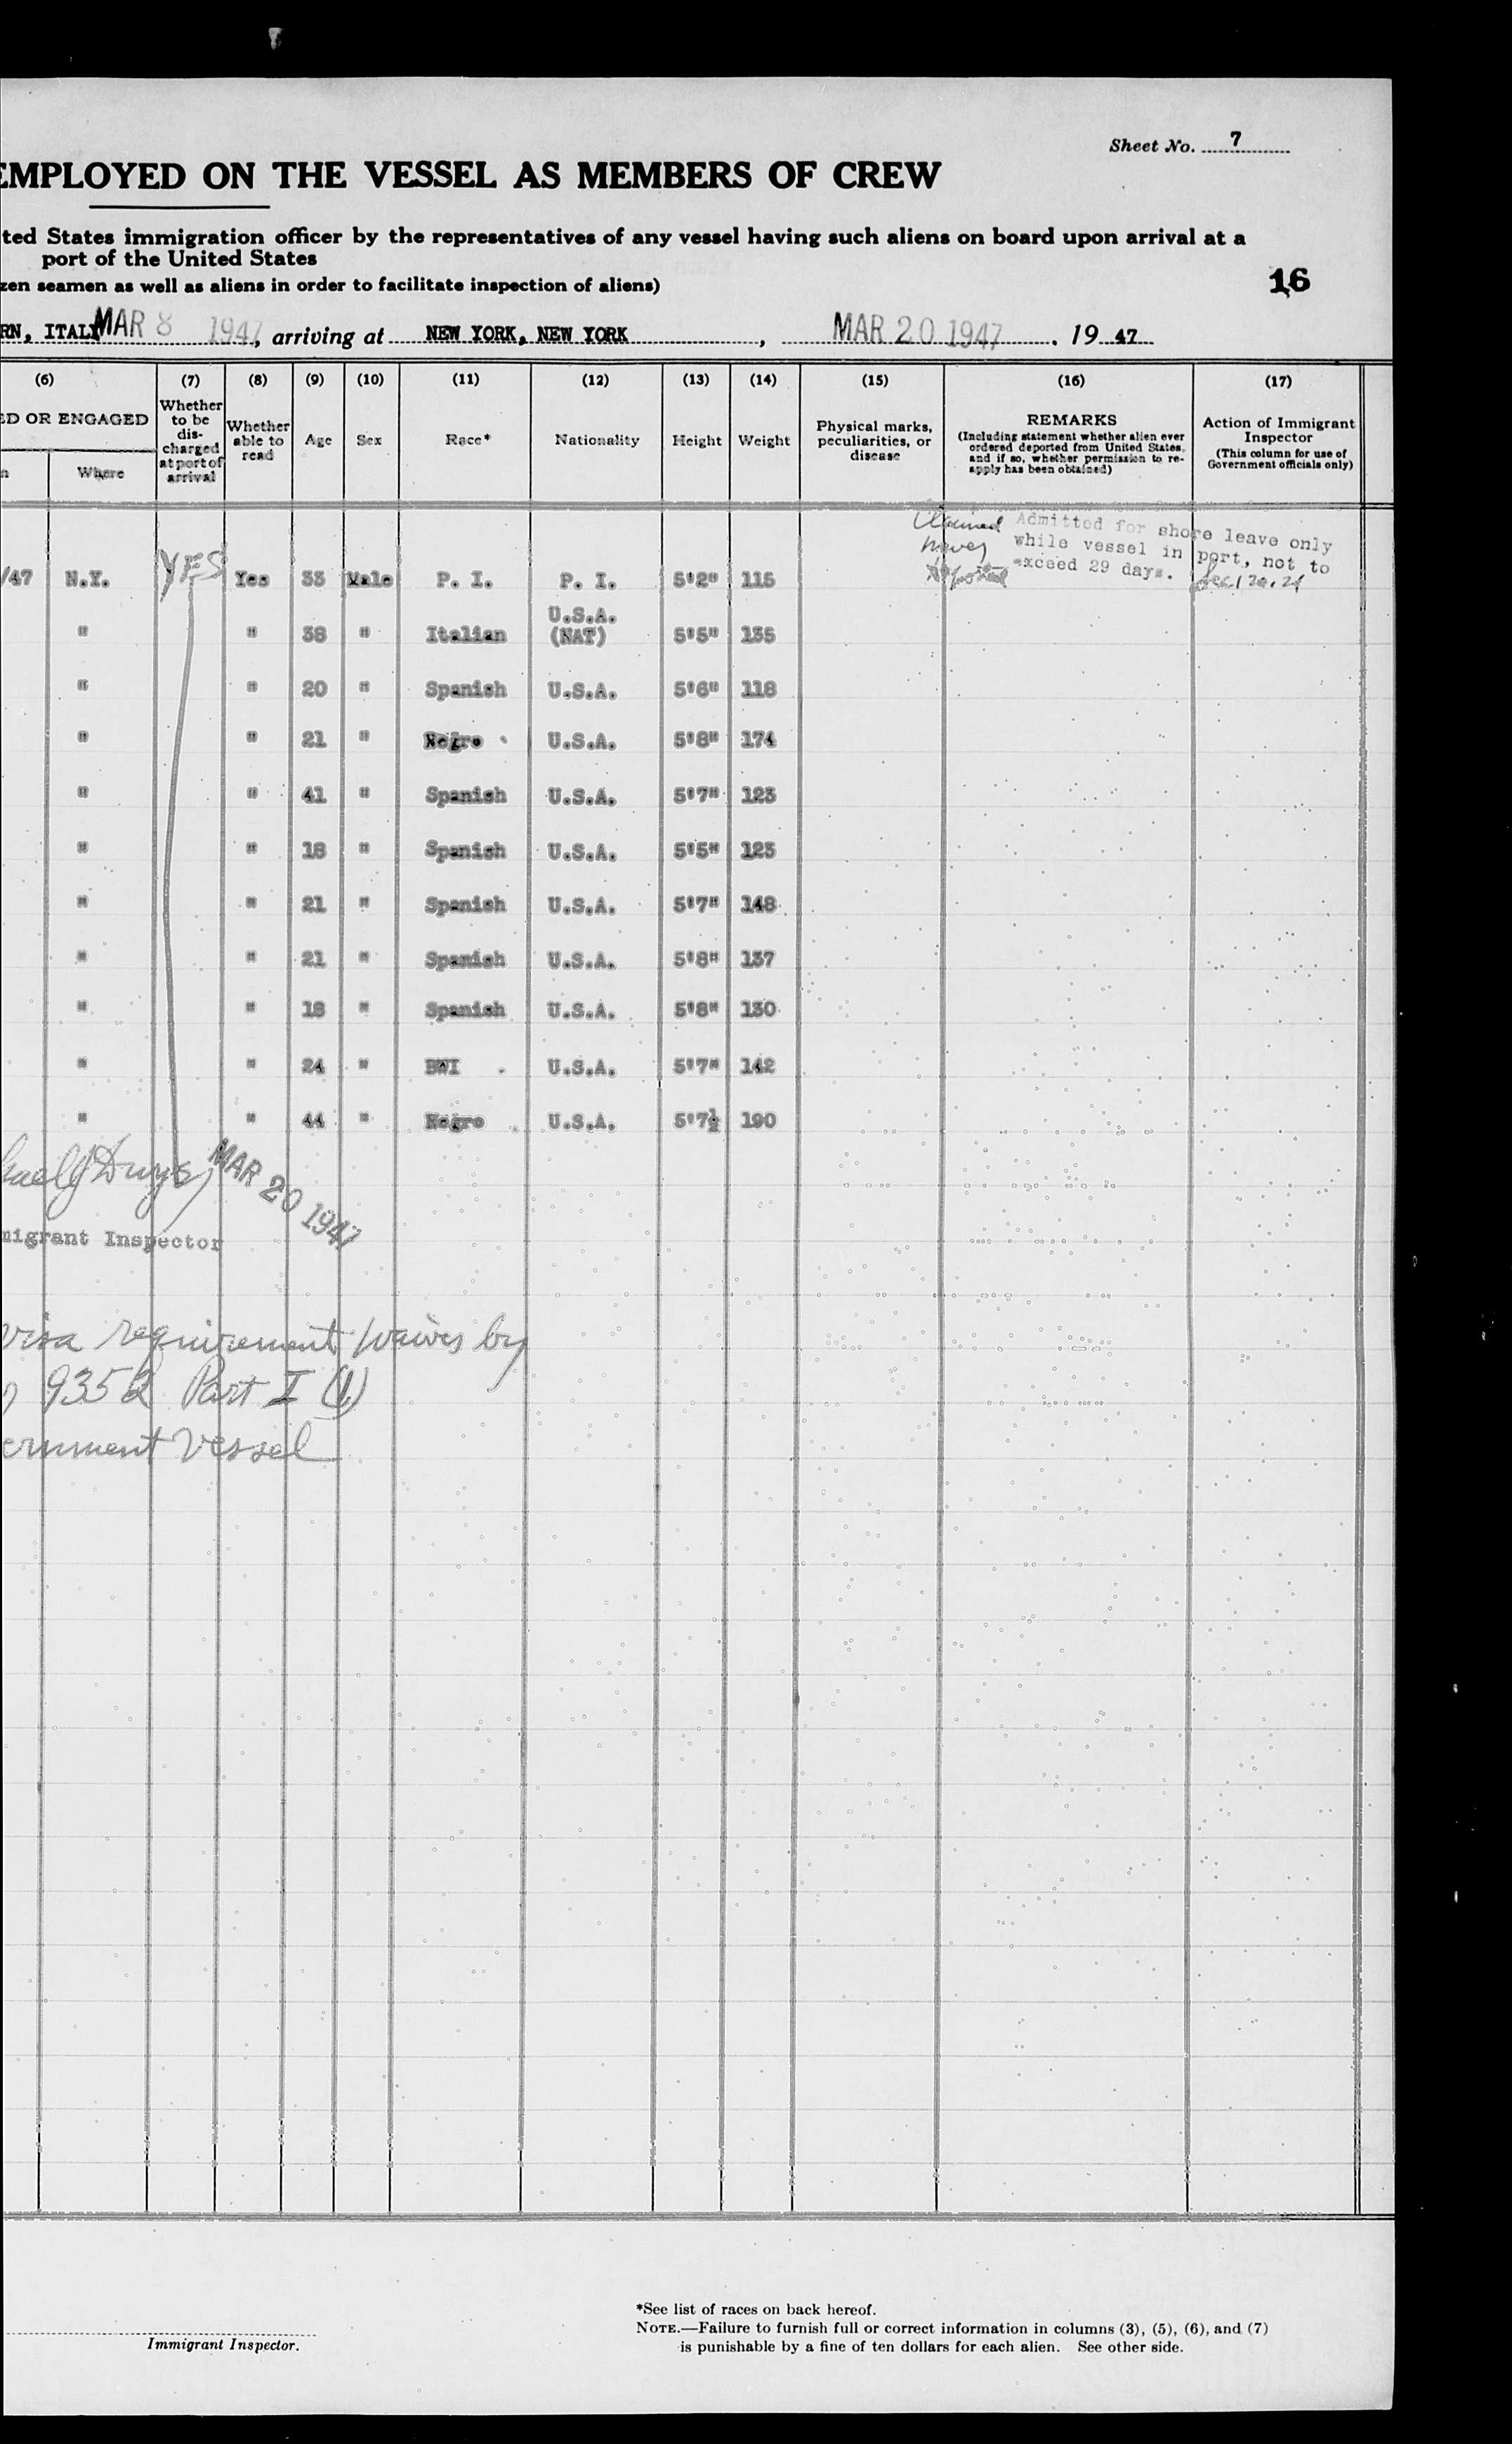 Sheet No. 7
EMPLOYED ON THE VESSEL AS MEMBERS OF CREW
ted States immigration officer by the representatives of any vessel having such aliens on board upon arrival at a
port of the United States
zen seamen as well as aliens in order to facilitate inspection of aliens)
16
RN, ITALY MAR 8 1947, arriving at NEW YORK, NEW YORK, MAR 20 1947. 19 47
(6) (7) (8) (9) (10) (11) (12) (13) (14) (15) (16) (17)
ED OR ENGAGED Whether to be dis-charged at port of arrival Whether able to read Age Sex Race* Nationality Height Weight Physical marks, peculiarities, or disease REMARKS (Including statement whether alien ever ordered deported from United States, and if so, whether permission to re-apply has been obtained) Action of Immigrant Inspector (This column for use of Government officials only)
n Where
Claimed Admitted for shore leave only
never while vessel in port, not to
exceed 29 days.
/47 N.Y. YES Yes 33 Male P. I. P. I. 5'2" 115
" " 38 " Italian U.S.A. (NAT) 5'5" 135
" " 20 " Spanish U.S.A. 5'6" 118
" " 21 " Negro U.S.A. 5'8" 174
" " 41 " Spanish U.S.A. 5'7" 123
" " 18 " Spanish U.S.A. 5'5" 123
" " 21 " Spanish U.S.A. 5'7" 148
" " 21 " Spanish U.S.A. 5'8" 137
" " 18 " Spanish U.S.A. 5'8" 130
" " 24 " BWI U.S.A. 5'7" 142
" " 44 " Negro U.S.A. 5'7½ 190
MAR 20 1947
migrant Inspector
visa requirement waives by
9352 Part I (1)
ernment Vessel
*See list of races on back hereof.
NOTE.—Failure to furnish full or correct information in columns (3), (5), (6), and (7)
Immigrant Inspector.
is punishable by a fine of ten dollars for each alien. See other side.